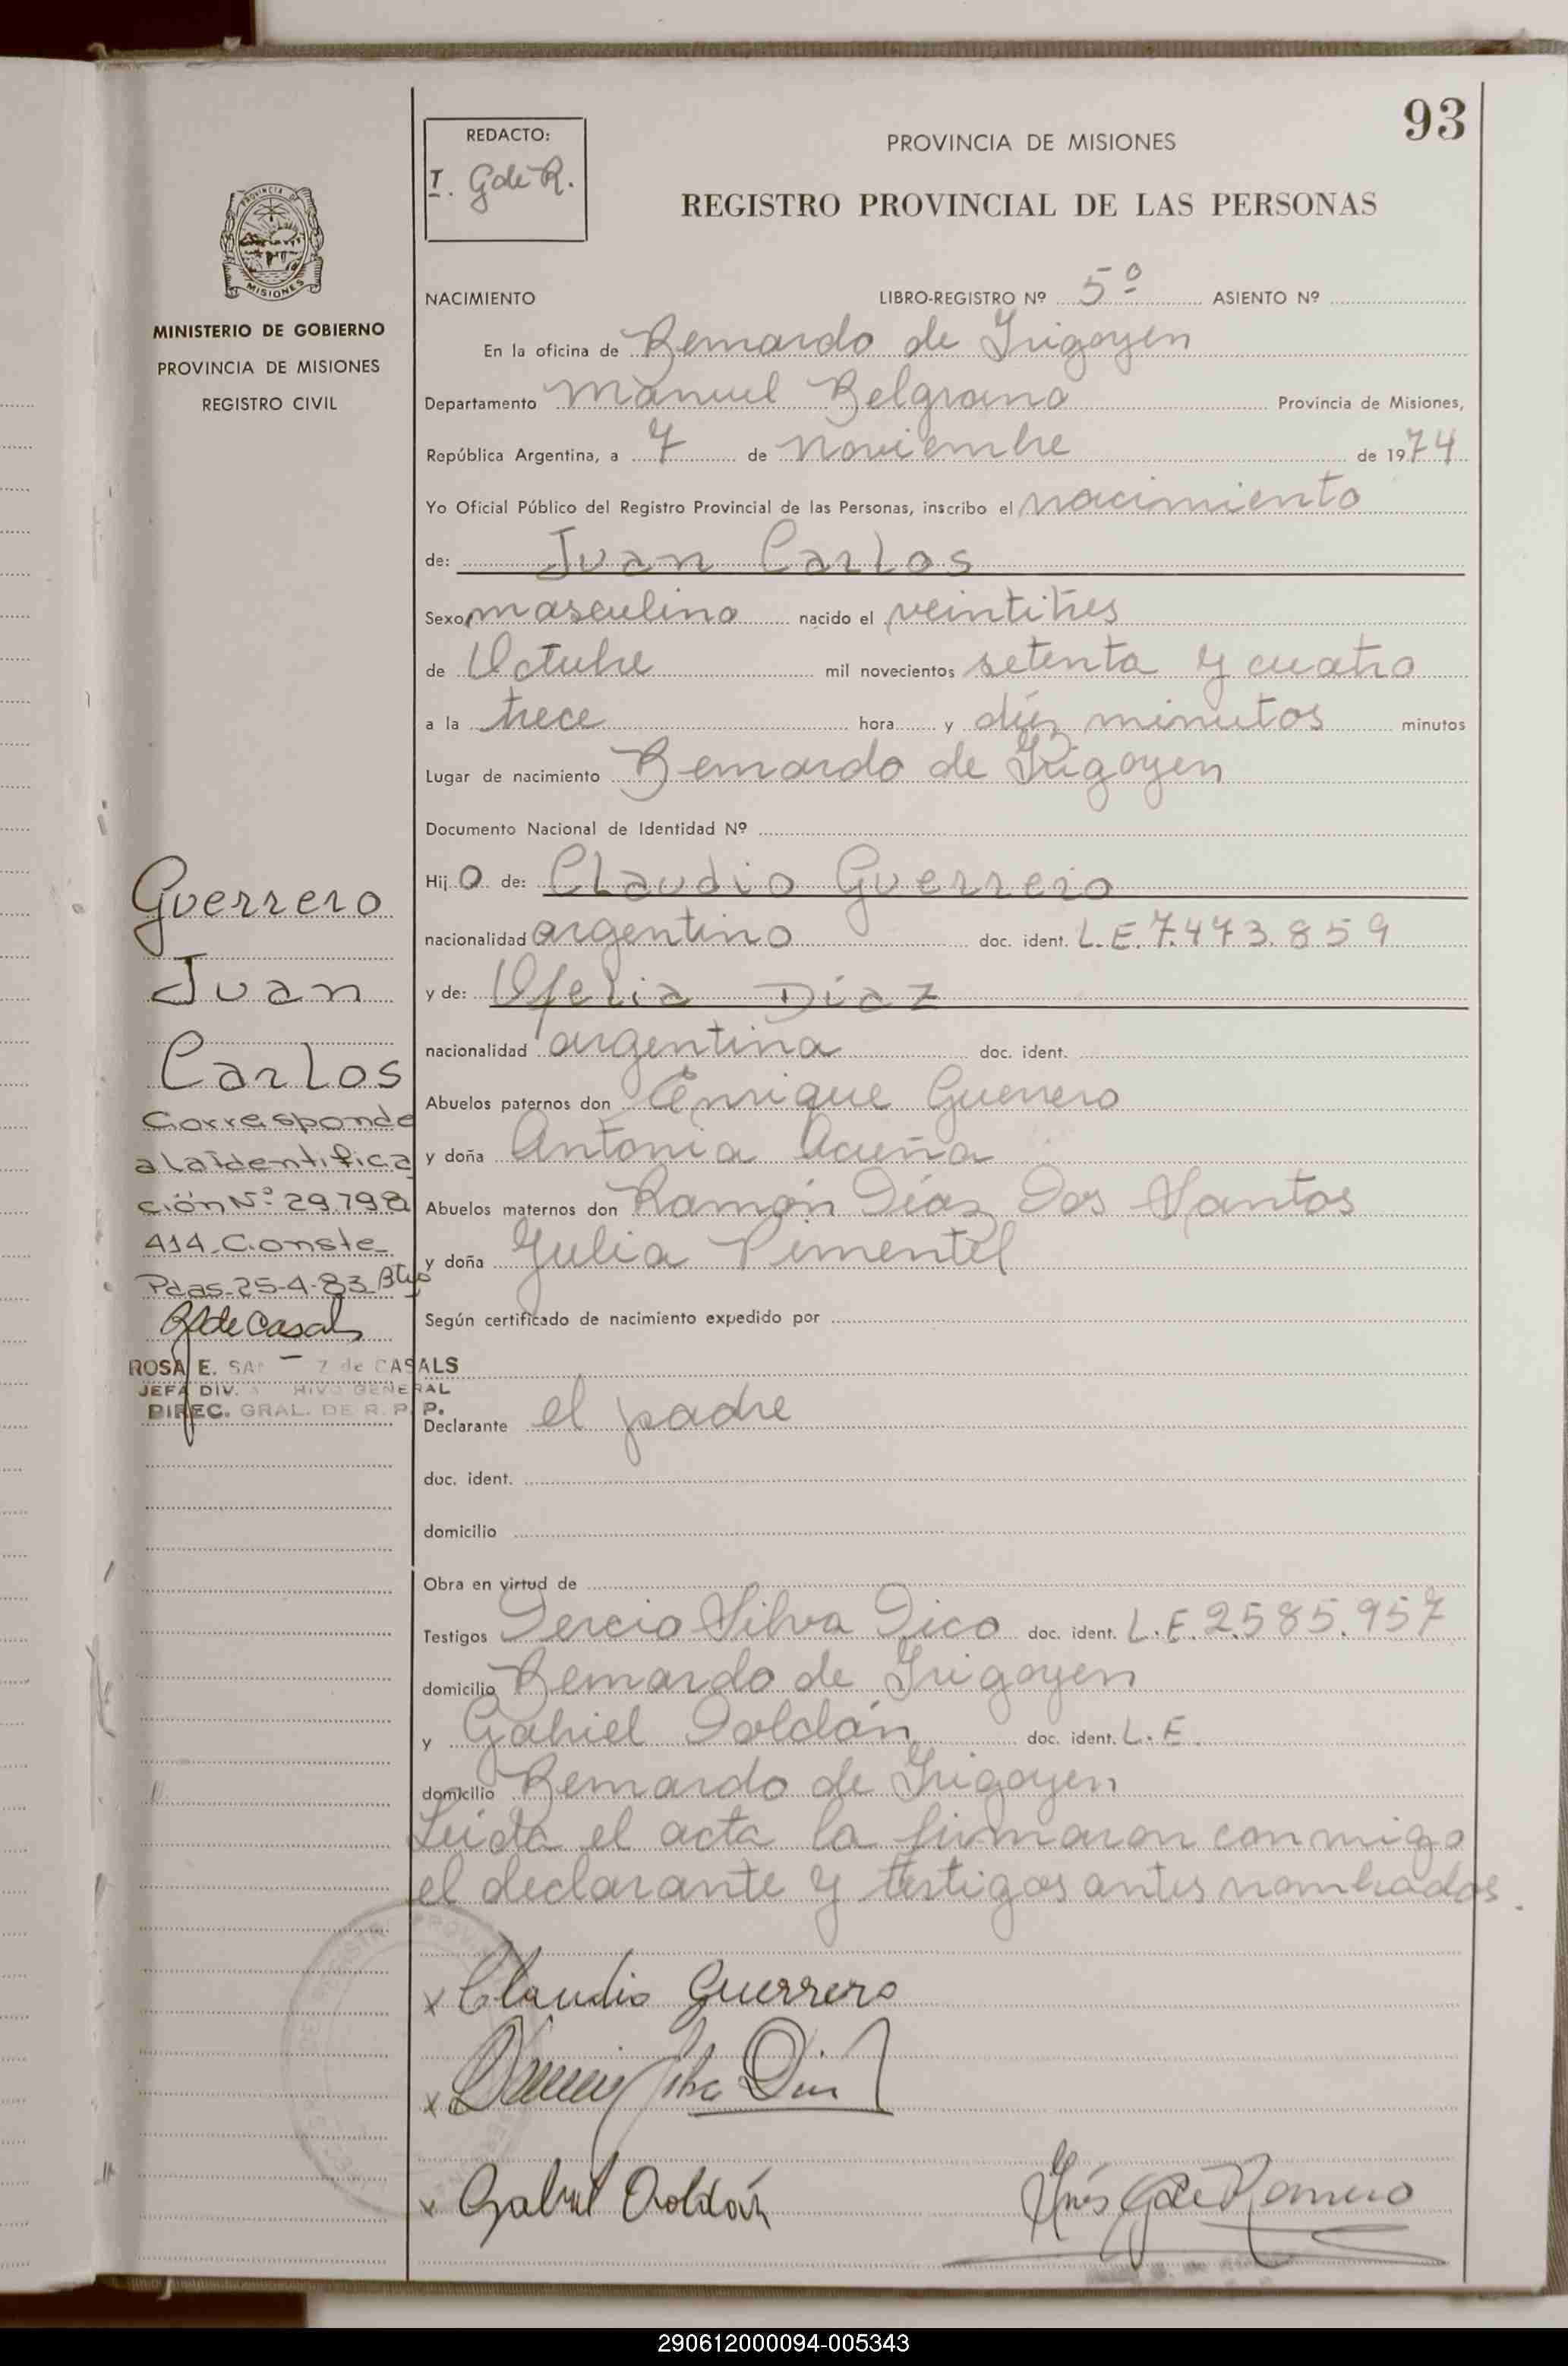 93
REDACTO:
I. G de R.
PROVINCIA DE MISIONES
REGISTRO PROVINCIAL DE LAS PERSONAS
MISIONES
MINISTERIO DE GOBIERNO
PROVINCIA DE MISIONES
REGISTRO CIVIL
NACIMIENTO LIBRO-REGISTRO Nº 5º ASIENTO Nº
En la oficina de Bernardo de Irigoyen
Departamento Manuel Belgrano Provincia de Misiones,
República Argentina, a 7 de noviembre de 1974
Yo Oficial Público del Registro Provincial de las Personas, inscribo el nacimiento
de: Juan Carlos
Sexo masculino nacido el veintitres
de Octubre mil novecientos setenta y cuatro
a la trece hora y diez minutos minutos
Lugar de nacimiento Bernardo de Irigoyen
Documento Nacional de Identidad Nº
Hij o de: Claudio Guerrero
nacionalidad argentino doc. ident. L.E. 7.473.859
y de: Ofelia Diaz
nacionalidad argentina doc. ident.
Abuelos paternos don Enrique Guerrero
y doña Antonia Acuña
Abuelos maternos don Ramón Díaz Dos Santos
y doña Julia Pimentel
Según certificado de nacimiento expedido por
Declarante el padre
doc. ident.
domicilio
Obra en virtud de
Testigos Dercio Silva Dico doc. ident. L.E. 2.585.957
domicilio Bernardo de Irigoyen
y Gabriel Doldán doc. ident. L.E.
domicilio Bernardo de Irigoyen
Leída el acta la firmaron conmigo
el declarante y testigos antes nombrados.
Guerrero
Juan
Carlos
Corresponde
a la identifica
ción Nº 29.798
414. Conste
Pdas. 25-4-83
R de Casals
ROSA E. de CASALS
JEFA DIV. GENERAL
DIREC. GRAL. DE R. P. P.
x Claudio Guerrero
x Silva
x Gabriel Doldán
Inés G de Romero
290612000094-005343